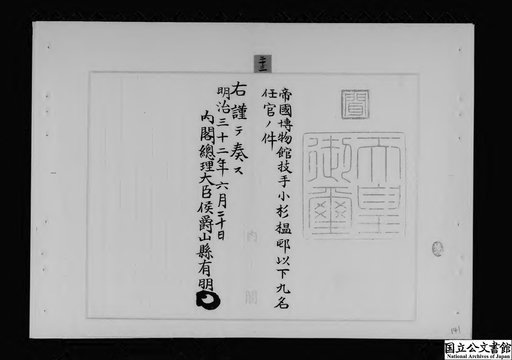 二十三
聞
天皇御璽
帝國博物館技手小杉榲邨以下九名
任官ノ件
右謹テ奏ス
明治三十二年六月二十日
内閣總理大臣侯爵山縣有朋
内閣
141
国立公文書館
National Archives of Japan